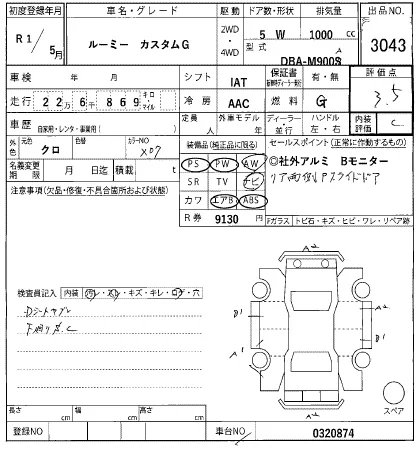 初度登録年月 車名・グレード 駆動 ドア数・形状 排気量 出品NO.
R1/5月 ルーミー カスタムG 2WD・4WD 5 W 1000 cc 3043
型式 DBA-M900S
車検 年 月 シフト IAT 保証書 有・無 評価点
走行 22万6千869 キロ・マイル 冷房 AAC 燃料 G 3.5
車歴 自家用・レンタ・事業用( ) 定員 人 外車モデル 年 ディーラー・並行 ハンドル 左・右 内装評価 C
外色 元色 クロ 色替 カラーNO X07 装備品(純正品に限る) セールスポイント(正常に作動するもの)
名義変更期限 月 日迄 積載 t PS PW AW ◎社外アルミ Bモニター
注意事項(欠品・修復・不具合箇所および状態) SR TV ナビ リア両側Pスライドドア
カワ エアB ABS
R券 9130 円 Fガラス トビ石・キズ・ヒビ・ワレ・リペア跡
A2
検査員記入 内装 汚レ・スレ・キズ・キレ・コゲ・穴
Dシートスレ
下廻りサ.C
B1 B1
A1 A1
A2
スペア
長さ cm 幅 cm 高さ cm
登録NO 車台NO 0320874